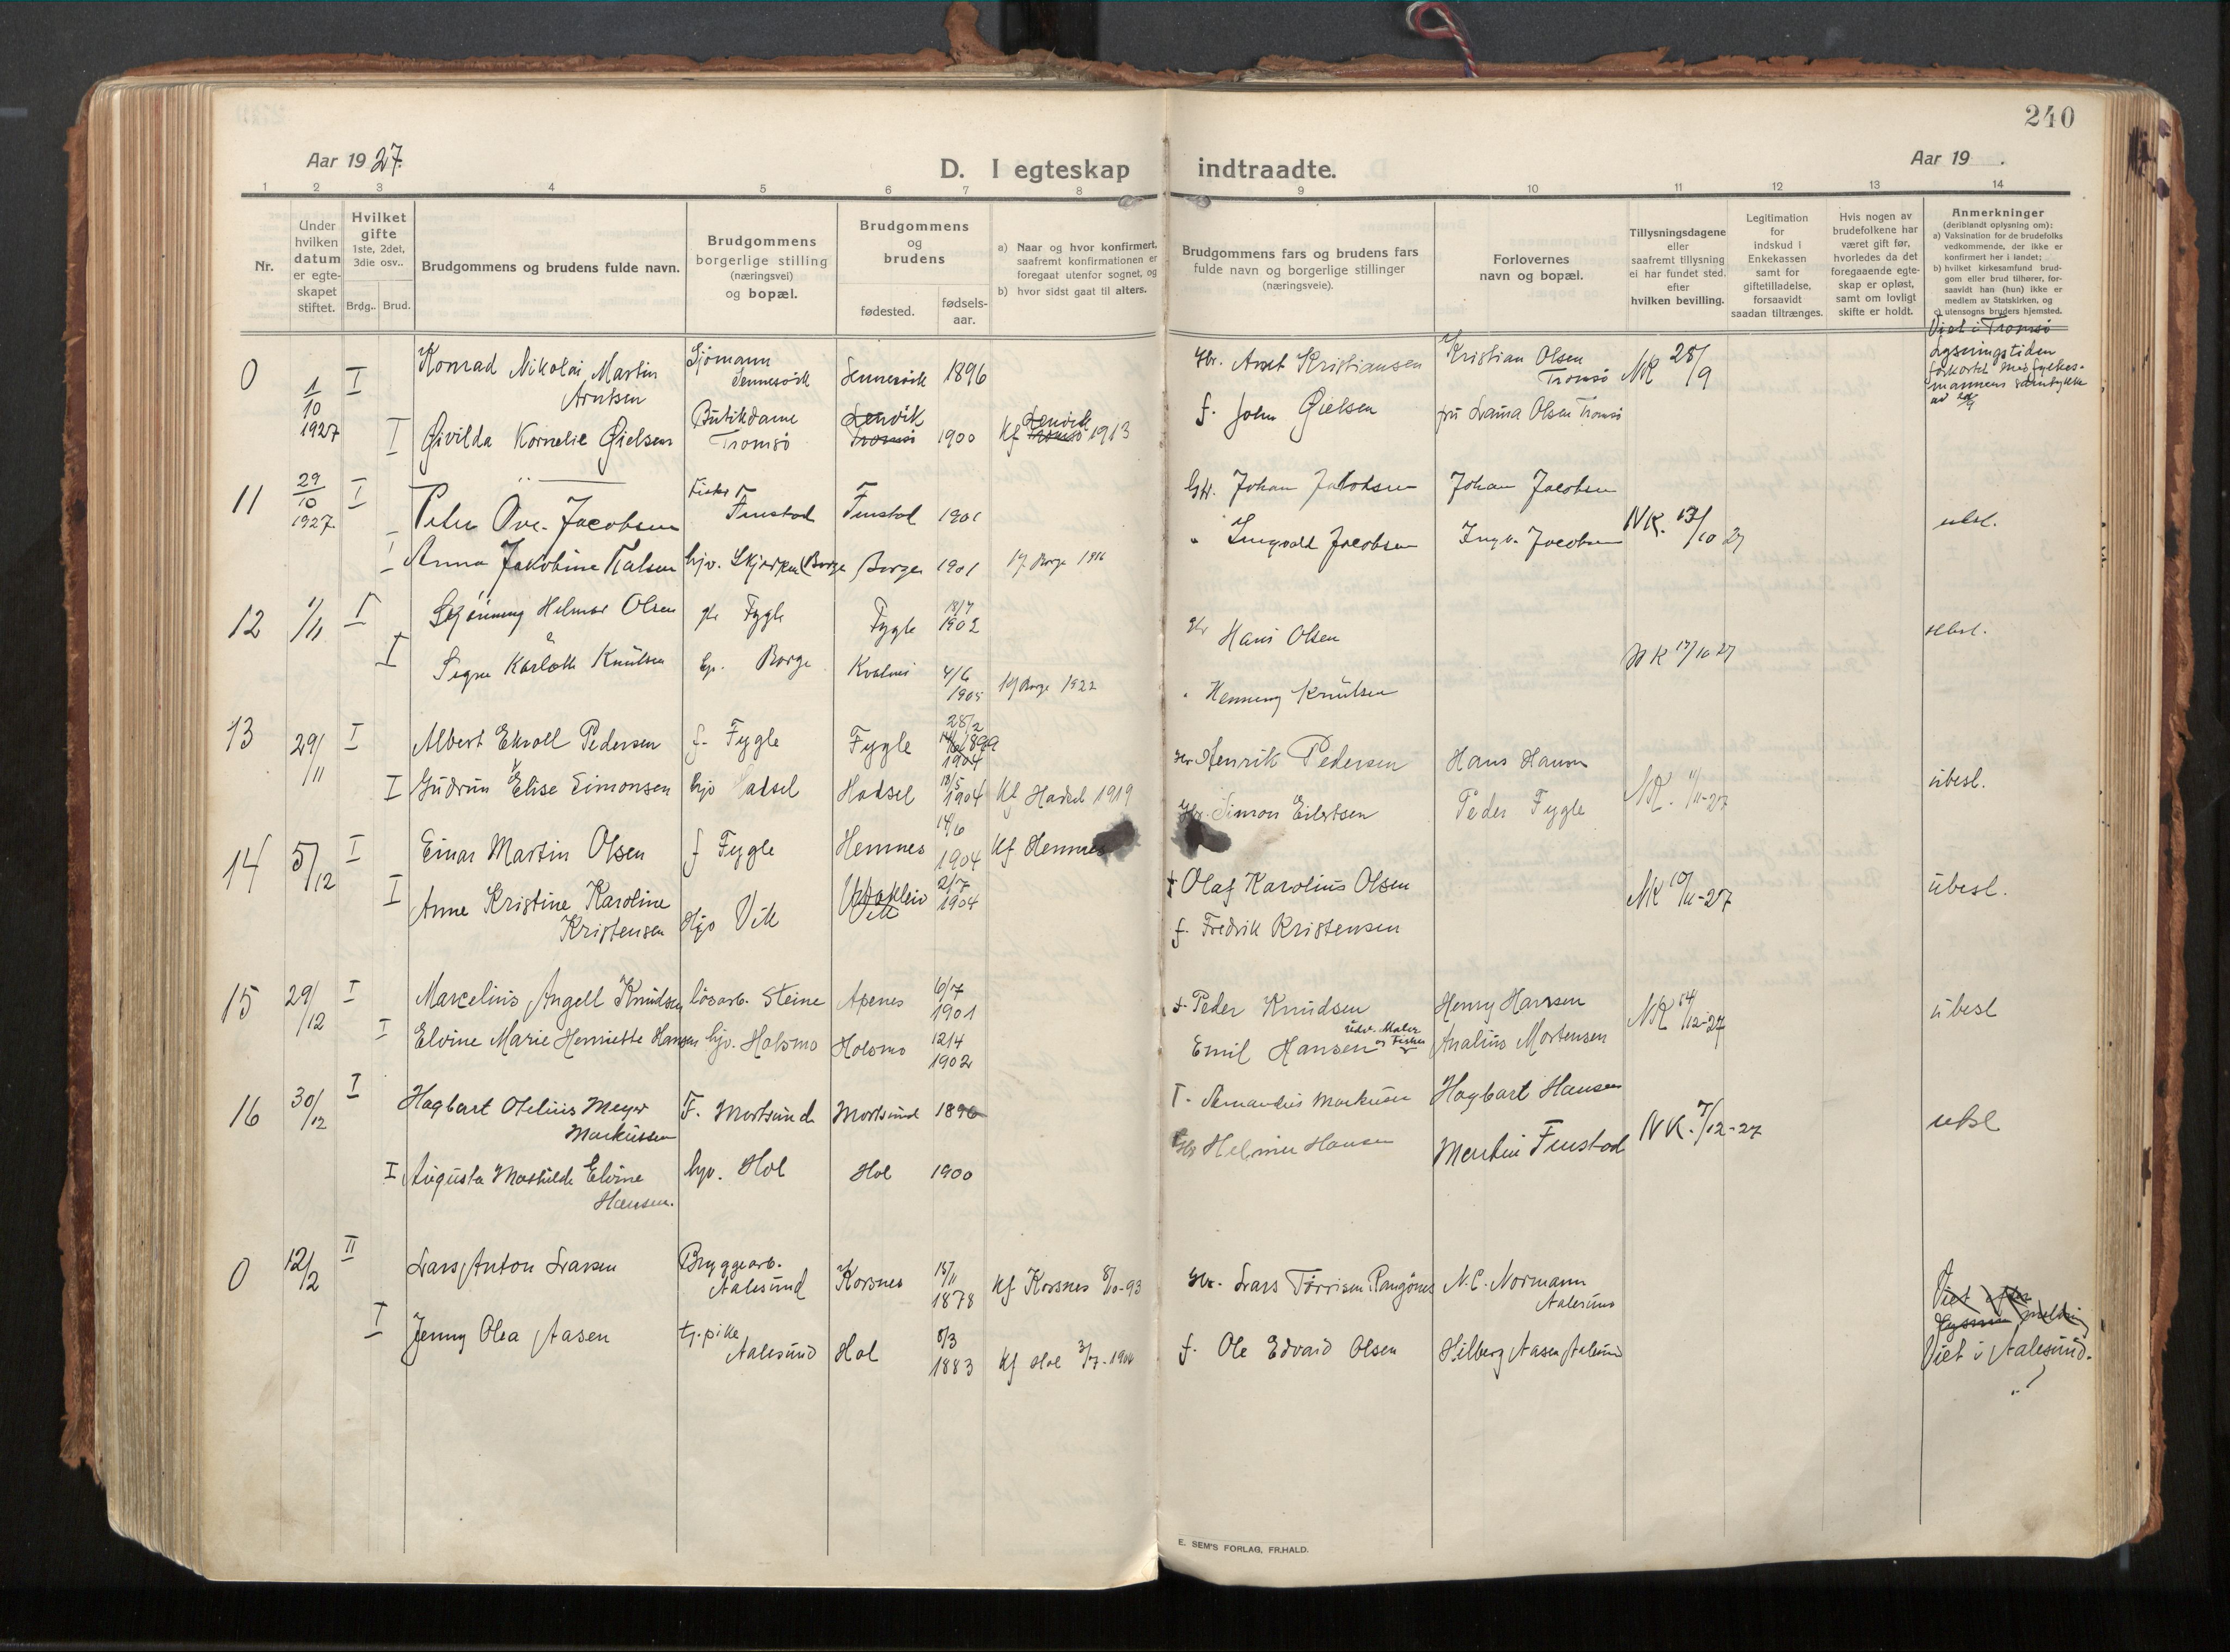 240
Aar 19 27.
D. I egteskap indtraadte.
Aar 19 .
1 2 3 4 5 6 7 8 9 10 11 12 13 14
Nr.
Under
hvilken
datum
er egte-
skapet
stiftet.
Hvilket
gifte
1ste, 2det,
3die osv..
Brdg.. Brud.
Brudgommens og brudens fulde navn.
Brudgommens
borgerlige stilling
(næringsvei)
og bopæl.
Brudgommens
og
brudens
fødested.
fødsels-
aar.
a) Naar og hvor konfirmert,
saafremt konfirmationen er
foregaat utenfor sognet, og
b) hvor sidst gaat til alters.
Brudgommens fars og brudens fars
fulde navn og borgerlige stillinger
(næringsveie).
Forlovernes
navn og bopæl.
Tillysningsdagene
eller
saafremt tillysning
ei har fundet sted,
efter
hvilken bevilling.
Legitimation
for
indskud i
Enkekassen
samt for
giftetilladelse,
forsaavidt
saadan tiltrænges.
Hvis nogen av
brudefolkene har
været gift før,
hvorledes da det
foregaaende egte-
skap er opløst,
samt om lovligt
skifte er holdt.
Anmerkninger
(deriblandt oplysning om):
a) Vaksination for de brudefolks
vedkommende, der ikke er
konfirmert her i landet;
b) hvilket kirkesamfund brud-
gom eller brud tilhører, for-
saavidt han (hun) ikke er
medlem av Statskirken, og
c) utensogns bruders hjemsted.
0 1/10 1927 I Konrad Nikolai Martin
Arntsen
Sjömann
Sennesvik Sennesvik 1896
Gbr. Arnt Kristiansen Kristian Olsen
Tromsö NK 28/9
Viet i Tromsö
Lysningstiden
forkortet med fylkes-
mannens samtykke
I Givilda Kornelie Gielsen Butikdame
Tromsö Lenvik
Tromsö 1900 Kf Lenvik
Tromsö 1913
f. John Gielsen fru Laura Olsen Tromsö
11 29/10 1927. I Peder Ove Jacobsen Fisker
Finstad Finstad 1901
Gbr. Johan Jakobsen Johan Jacobsen
I Anna Jakobine Falsen hjv. Borge Borge 1901 Kf. Borge 1916
" Ingvald Jacobsen Ingv. Jacobsen NK. 13/10 27 ubsl.
12 1/11 I Henning Helmar Olsen gb Fygle Fygle 18/7 1902
Gbr Hans Olsen ubsl.
I Signe Karlotte Knutsen hj. Borge Kvalnes 4/6 1905 Kf Borge 1922
" Henning Knutsen NK 17/10 27
13 29/11 I Albert Ekroll Pedersen f. Fygle Fygle 28/2 1899
1904
Gbr Henrik Pedersen Hans Hansen
I Gudrun Elise Simonsen hjv Hadsel Hadsel 18/5 1904 Kf Hadsel 1919
Gbr. Simon Eilertsen Peder Fygle NK. 11/11-27 ubesl.
14 5/12 I Einar Martin Olsen f Fygle Hemnes 14/6 1904 Kf Hemnes
f Olaf Karolius Olsen NK 10/11-27 ubesl.
I Anne Kristine Karoline
Kristensen Hjv Vik Vik 2/7 1904
f. Fredrik Kristensen
15 29/12 I Marcelius Angell Knudsen lösarb. Steine Apenes 6/7 1901
f. Peder Knudsen Henry Hansen NK 14/12-27 ubesl
I Elvine Marie Henriette Hansen hjv. Holsmo Holsmo 12/4 1902
Emil Hansen udv. Maler
og Fisker Analius Mortensen
16 30/12 I Hagbart Otelius Meyer
Markussen F. Mortsund Mortsund 1896
F. Amandus Markussen Hagbart Hansen
I Augusta Mathilde Elvine
Hansen. hjv. Hol Hol 1900
Gbr Helmer Hansen Martin Finstad NK. 7/12-27 ubsl
0 12/2 II Lars Anton Larsen Bryggearb.
Aalesund Korsnes 18/11 1878 Kf Korsnes 8/10-93
Gbr. Lars Tørrisen Rangönes N. C. Normann
Aalesund
I Jenny Olea Aasen tj. pike
Aalesund Hol 8/3 1883 Kf Hol 3/7-1904
f. Ole Edvard Olsen Hilberg Aasen Aalesund
Viet efter
lysnings melding
Viet i Aalesund.
E. SEM'S FORLAG, FR.HALD.